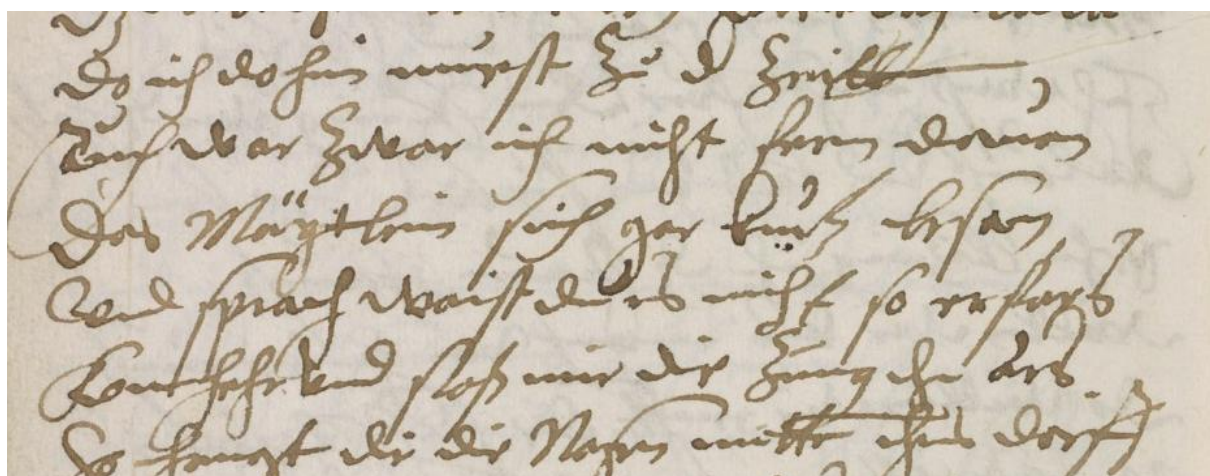 Do ich dohin muest zu d Zeitt
Auch war zwar ich nicht fern davon
Das Mäÿtlein sich gar kurtz besan
Vnd sprach waist du es nicht so erfars
kom hehr vnd stoß mir die Zung Inn Ars
So hangt dir die Nasen mitte Ins dorff